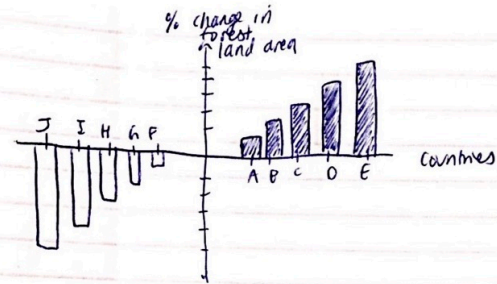 % change in
forest
land area
J I H G F
A B C D E
Countries